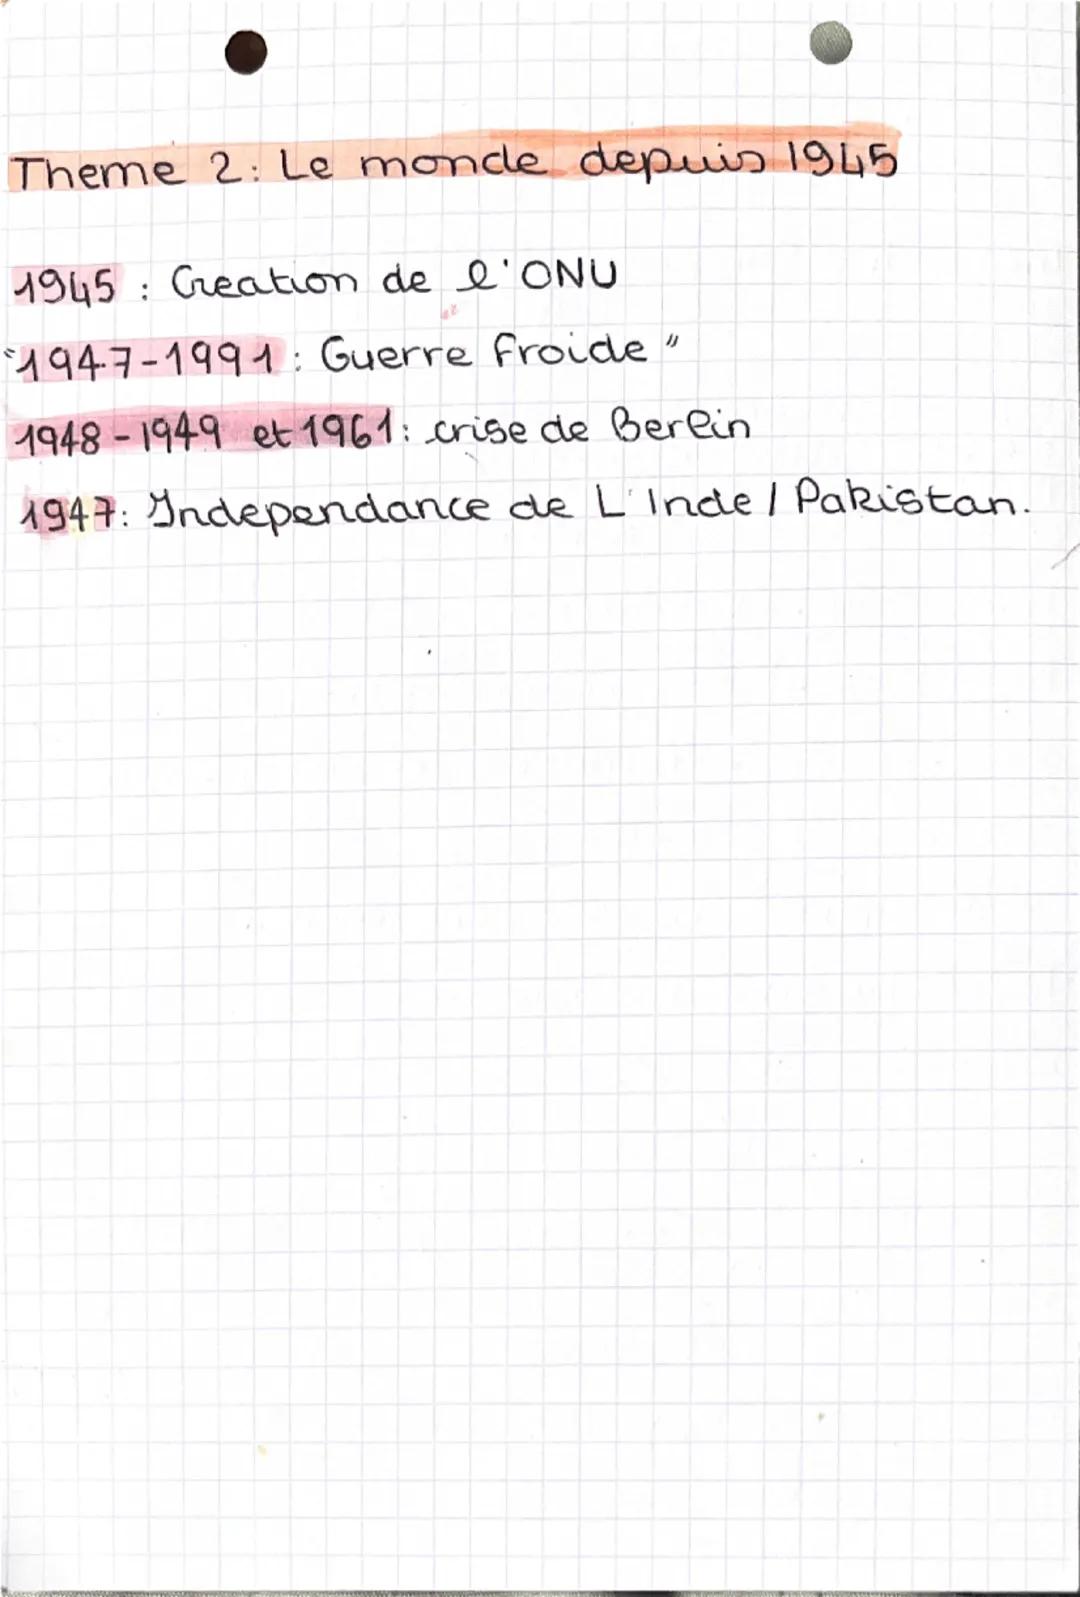 Theme 2: Le monde depuis 1945
1945 : Creation de l'ONU
"1947-1991 : Guerre froide"
1948-1949 et 1961: crise de Berlin
1947: Independance de L'Inde / Pakistan.